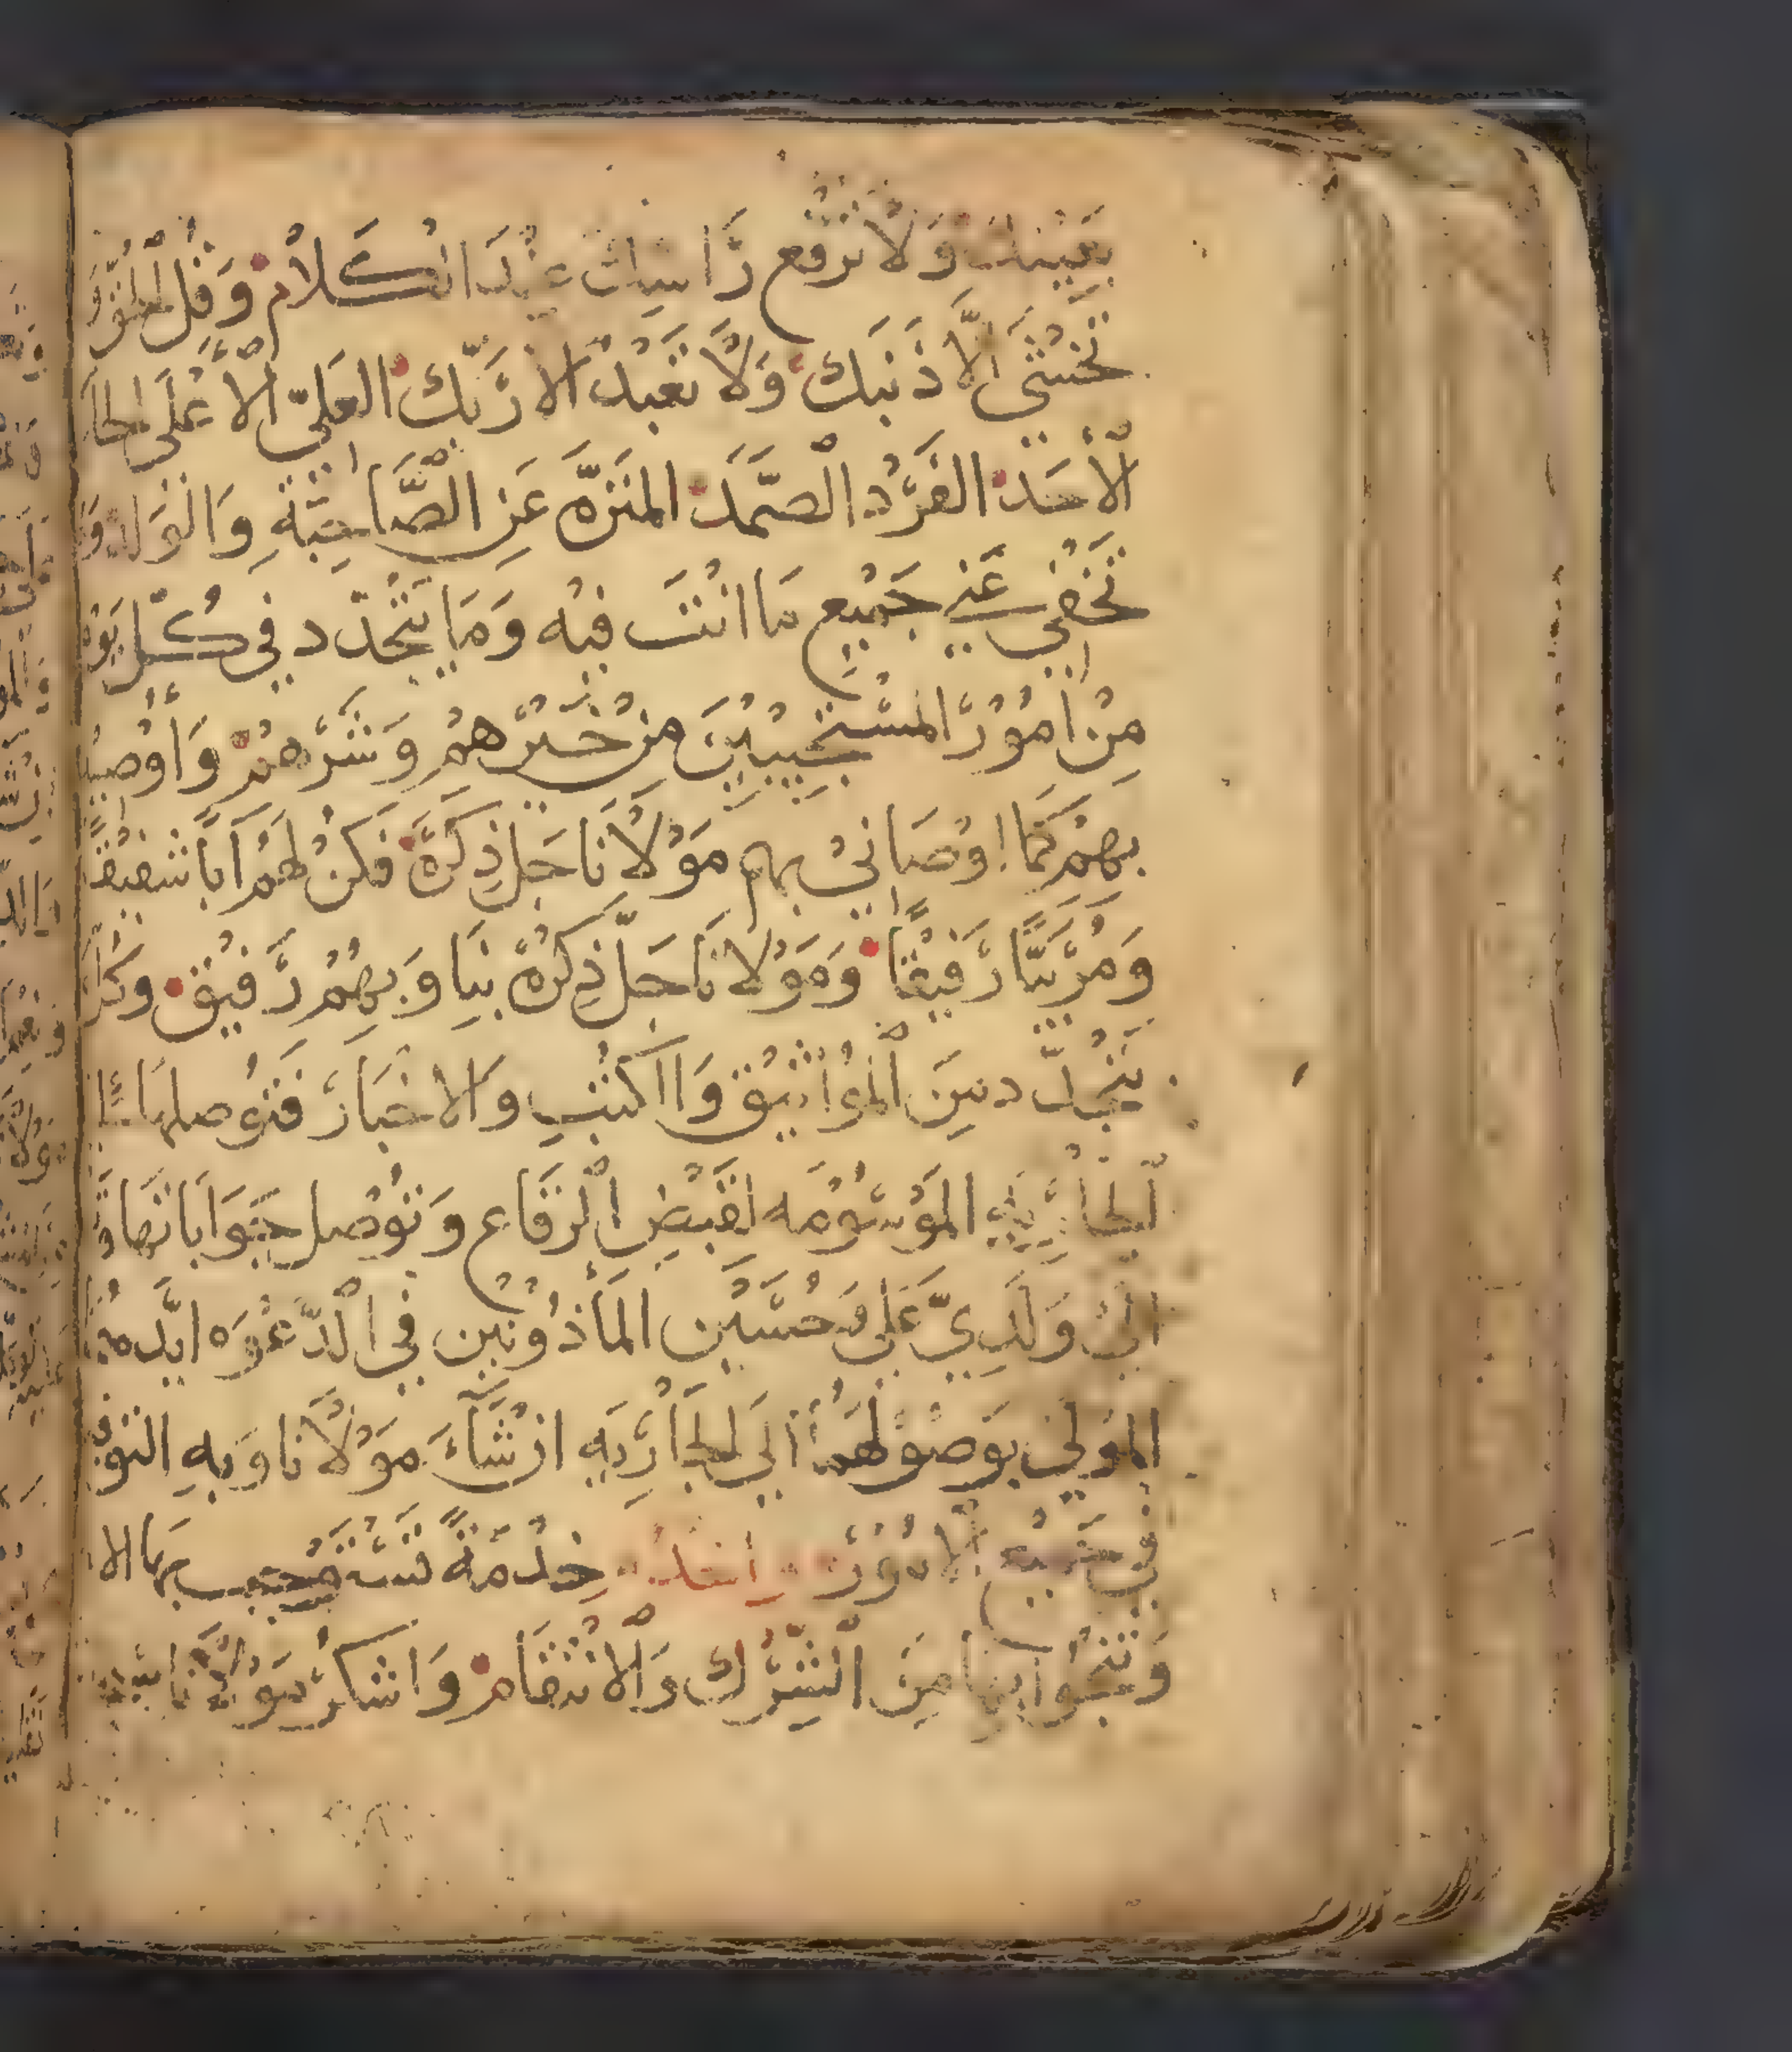 بعينك وَلا ترفع رَاسك عند الكَلامْ وَقل الحق وَ
تخشَي الّا ذنبَك وَلَا تعْبدْ الا رَبّك العَليّ الأعْلَي
الأحَد الفَرْد الصَّمَد المنَزّه عَنِ الصَّاحِبَةِ وَالوَلد وَ
تخْفي عَني جَمْيع مَا انْتَ فيْه وَمَا يتَجدّد في كُل يَوْم
مِنْ امُوْرَ المسْتجيْبيْنَ مِنْ خَيْرهمْ وَشَرّهمْ وَأوْصيْك
بهمْ كَمَا اوْصَانيْ بهم مَوْلَانَا جَل ذِكرَهْ فَكنْ لَهُمْ اَبًا شفيْقًا
وَمُرَبيًّا رَفيْقًا وَمَوْلانَا جَلّ ذِكرهْ بنَا وَبهِمُ رَفيْق وَكل
يتجدّد منَ المْوَاثيْق وَالكتْبِ وَالاخبَارَ فَتوُصلهَا
الجَارْيه المَوْسُوْمه لقَبْضِ الرقَاع وَتوُصل جَوَابَاتهَا وَ
الي وَلَدِيَّ عَلي وَحسَيْن المَأْذُونيْن في الدّعْوَه ايّدهمُ
المَوْلي بوَصوْلهمَا الي الجَارْيَهِ ان شَآءَ مَوْلَانا وَبهِ التوفيْ
في جَميْع الامُوْرْ وَاخدْمُ خِدْمَةً تسْتَوْجب بهَا الا
وَتنجُوا بهَا مِنَ الشِّرْك وَالْانتقَام وَاشكرْ مَوْلَانَا